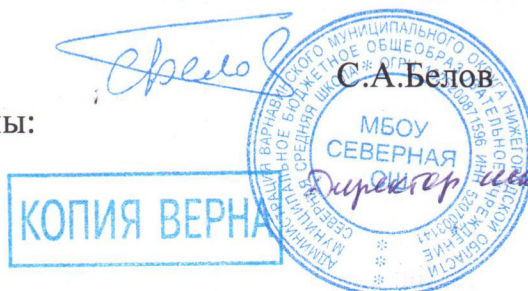 С.А.Белов
ны:
АДМИНИСТРАЦИЯ ВАРНАВИНСКОГО МУНИЦИПАЛЬНОГО ОКРУГА НИЖЕГОРОДСКОЙ ОБЛАСТИ
МУНИЦИПАЛЬНОЕ БЮДЖЕТНОЕ ОБЩЕОБРАЗОВАТЕЛЬНОЕ УЧРЕЖДЕНИЕ
СЕВЕРНАЯ СРЕДНЯЯ ШКОЛА * ОГРН
ИНН 5207003141
МБОУ
СЕВЕРНАЯ
Директор
КОПИЯ ВЕРНА